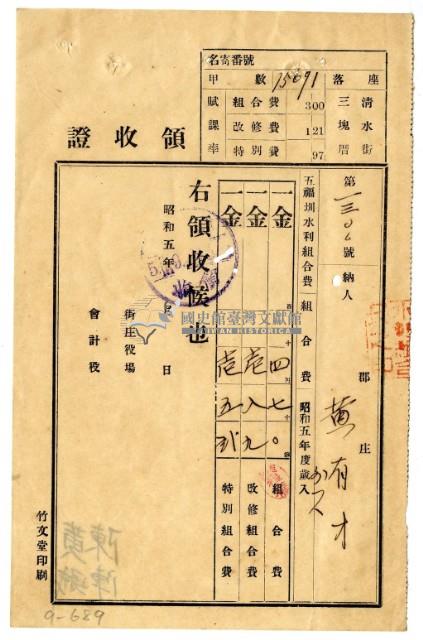 名寄番號
甲數 1.5691
座落 清水街 三塊厝
賦課率
組合費 300
改修費 121
特別費 97
領收證
第一三〇〇號
納人
郡 庄
黃有才
五福圳水利組合費
組合費
昭和五年度歲入
一金 四七〇 組合費
一金 壱八九 改修組合費
一金 壱五弐 特別組合費
右領收候也
昭和五年 月 日
街庄役場
會計役
5.11.9
國史館臺灣文獻館
TAIWAN HISTORICA
竹文堂印刷
陳黃
9-689